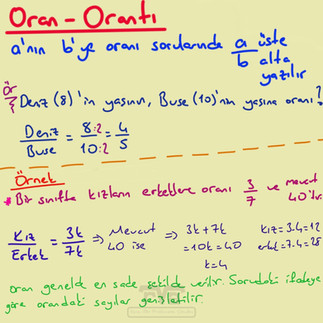 Oran - Orantı
a'nın b'ye oranı sorularında a/b üste alta yazılır
Ör
Deniz (8)'in yaşının, Buse (10)'nin yaşına oranı?
Deniz/Buse = 8:2/10:2 = 4/5
Örnek
* Bir sınıfta kızların erkeklere oranı 3/7 ve mevcut 40'dır.
Kız/Erkek = 3k/7k ⇒ Mevcut 40 ise ⇒ 3k+7k =10k=40 k=4
kız=3.4=12
erkek=7.4=28
Oran genelde en sade şekilde verilir. Sorudaki ifadeye
göre orandaki sayılar genişletilir.